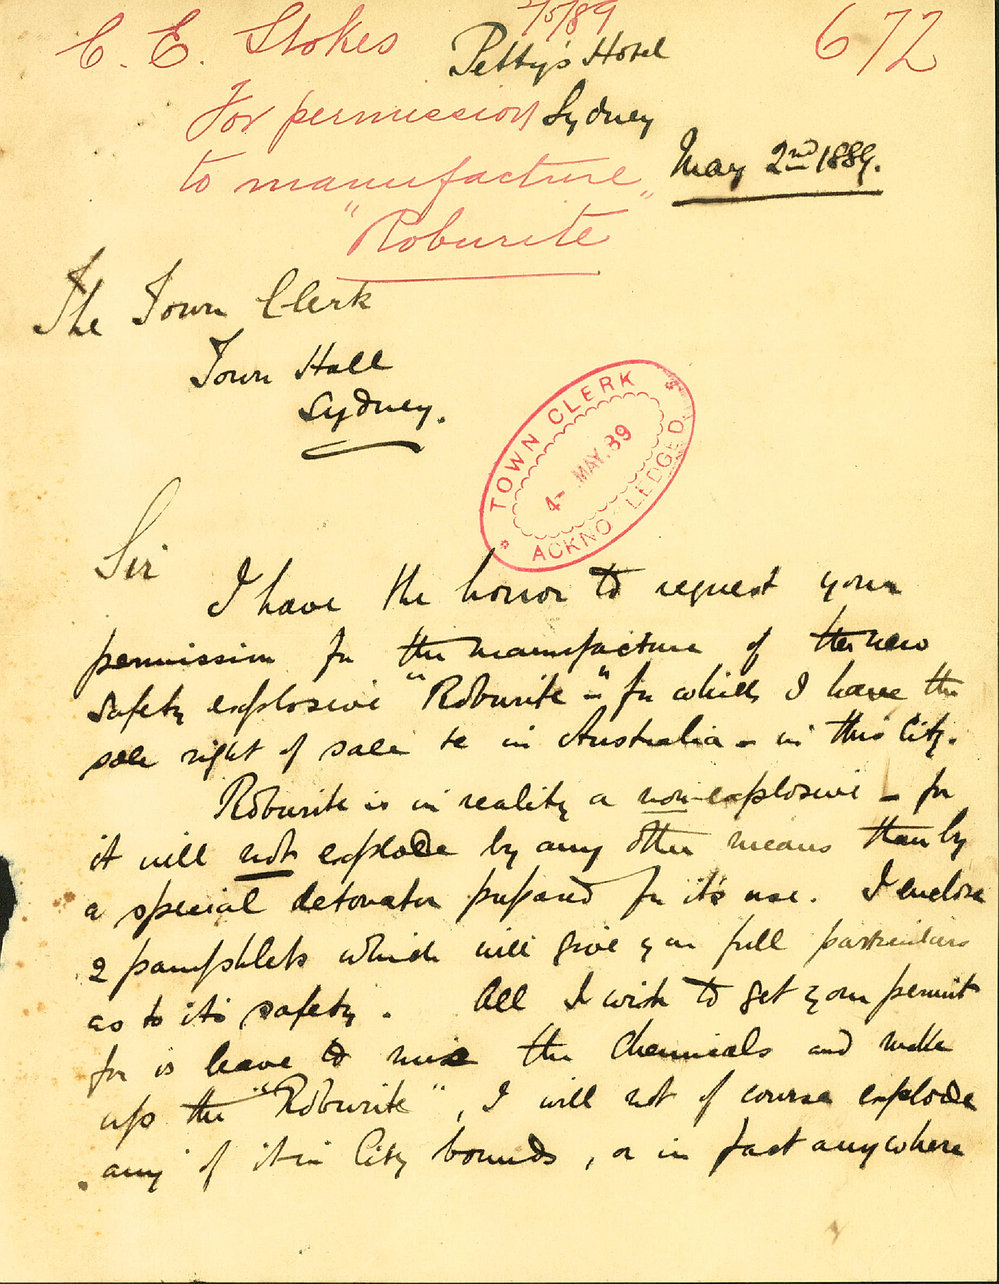 C. E. Stokes
2/5/89
672
Petty's Hotel
For permission
Sydney
to manufacture
May 2nd 1889.
"Roburite"
The Town Clerk
Town Hall
Sydney.
TOWN CLERK
4- MAY. 89
ACKNO LEDGED
Sir
I have the honor to request your
permission for the manufacture of the new
safety explosive "Roburite -" for which I have the
sole right of sale in Australia - in this City.
Roburite is in reality a non-explosive - for
it will not explode by any other means than by
a special detonator prepared for it's use. I enclose
2 pamphlets which will give you full particulars
as to it's safety. All I wish to get your permit
for is leave to mix the Chemicals and make
up the "Roburite", I will not of course explode
any of it in City bounds, or in fact anywhere